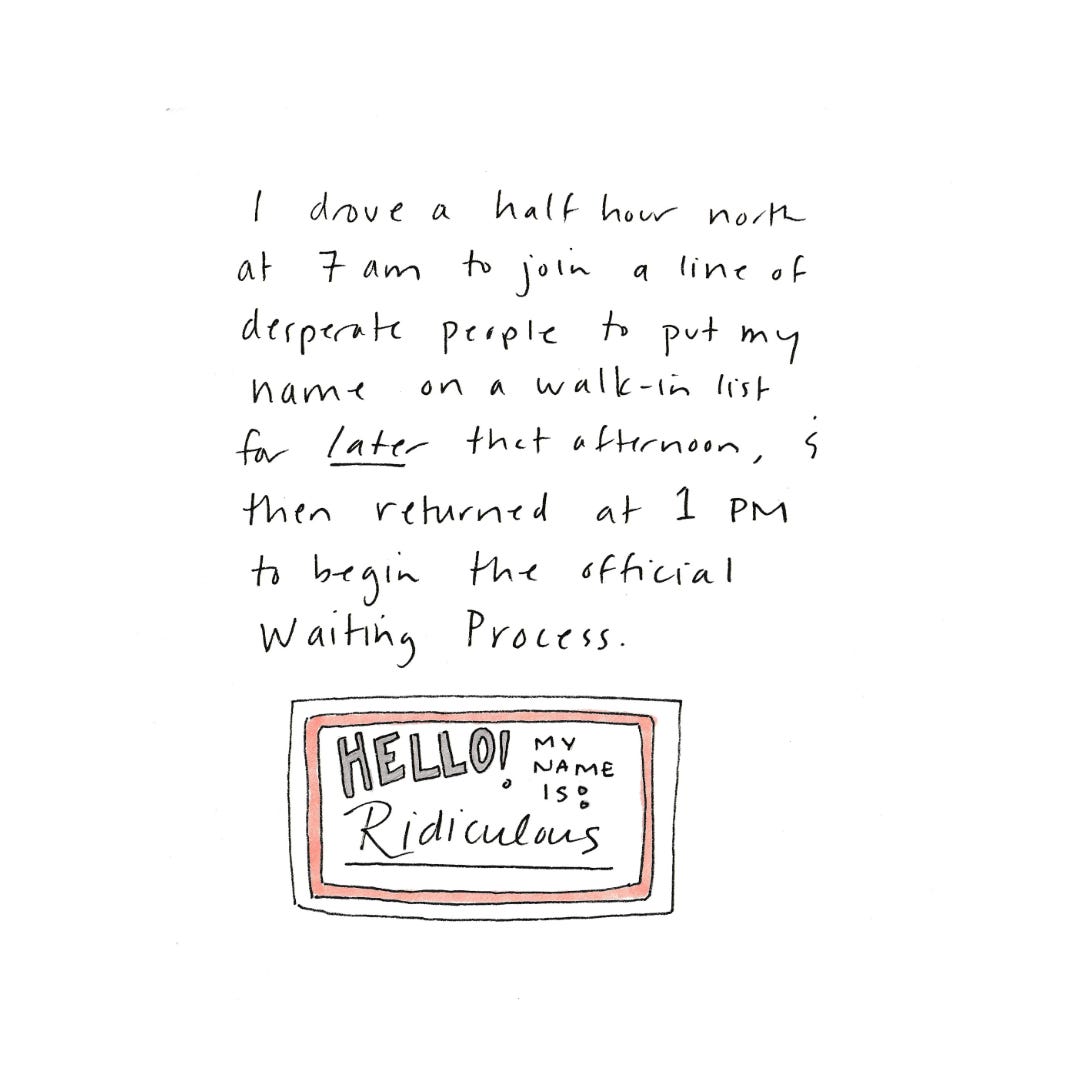 I drove a half hour north
at 7 am to join a line of
desperate people to put my
name on a walk-in list
for later that afternoon, &
then returned at 1 PM
to begin the official
Waiting Process.
HELLO! MY
NAME
IS:
Ridiculous